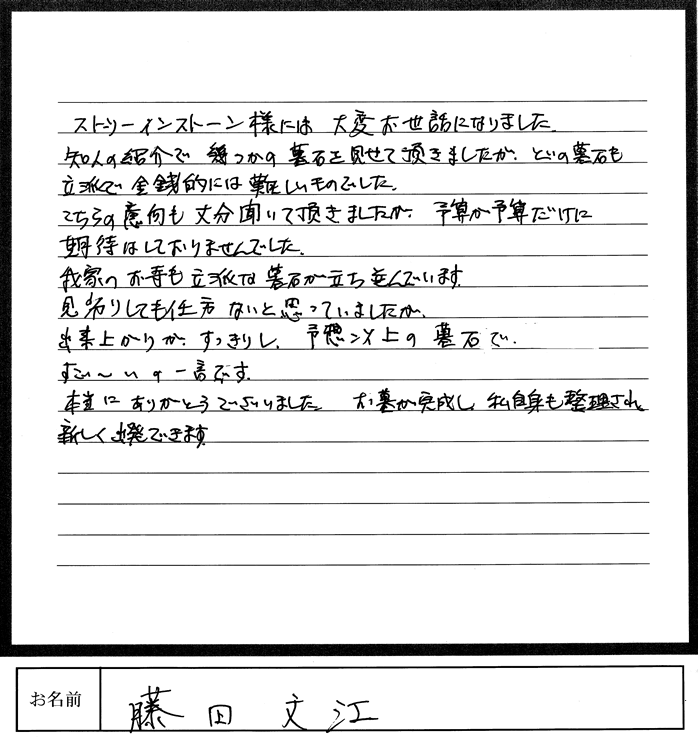 ストーリーインストーン様には 大変お世話になりました。
知人の紹介で 幾つかの墓石を見せて頂きましたが、どの墓石も
立派で 金銭的には難しいものでした。
こちらの意向も 丈分聞いて頂きましたが、予算が予算だけに
期待はしておりませんでした。
我家のお寺も立派な墓石が立ち並んでいます。
見劣りしても仕方ないと思っていましたが、
出来上がりが、すっきりし、予想以上の墓石で、
すご〜いの一言です。
本当にありがとうございました。 お墓が完成し、私自身も整理され
新しく出発できます。
お名前
藤田 文江